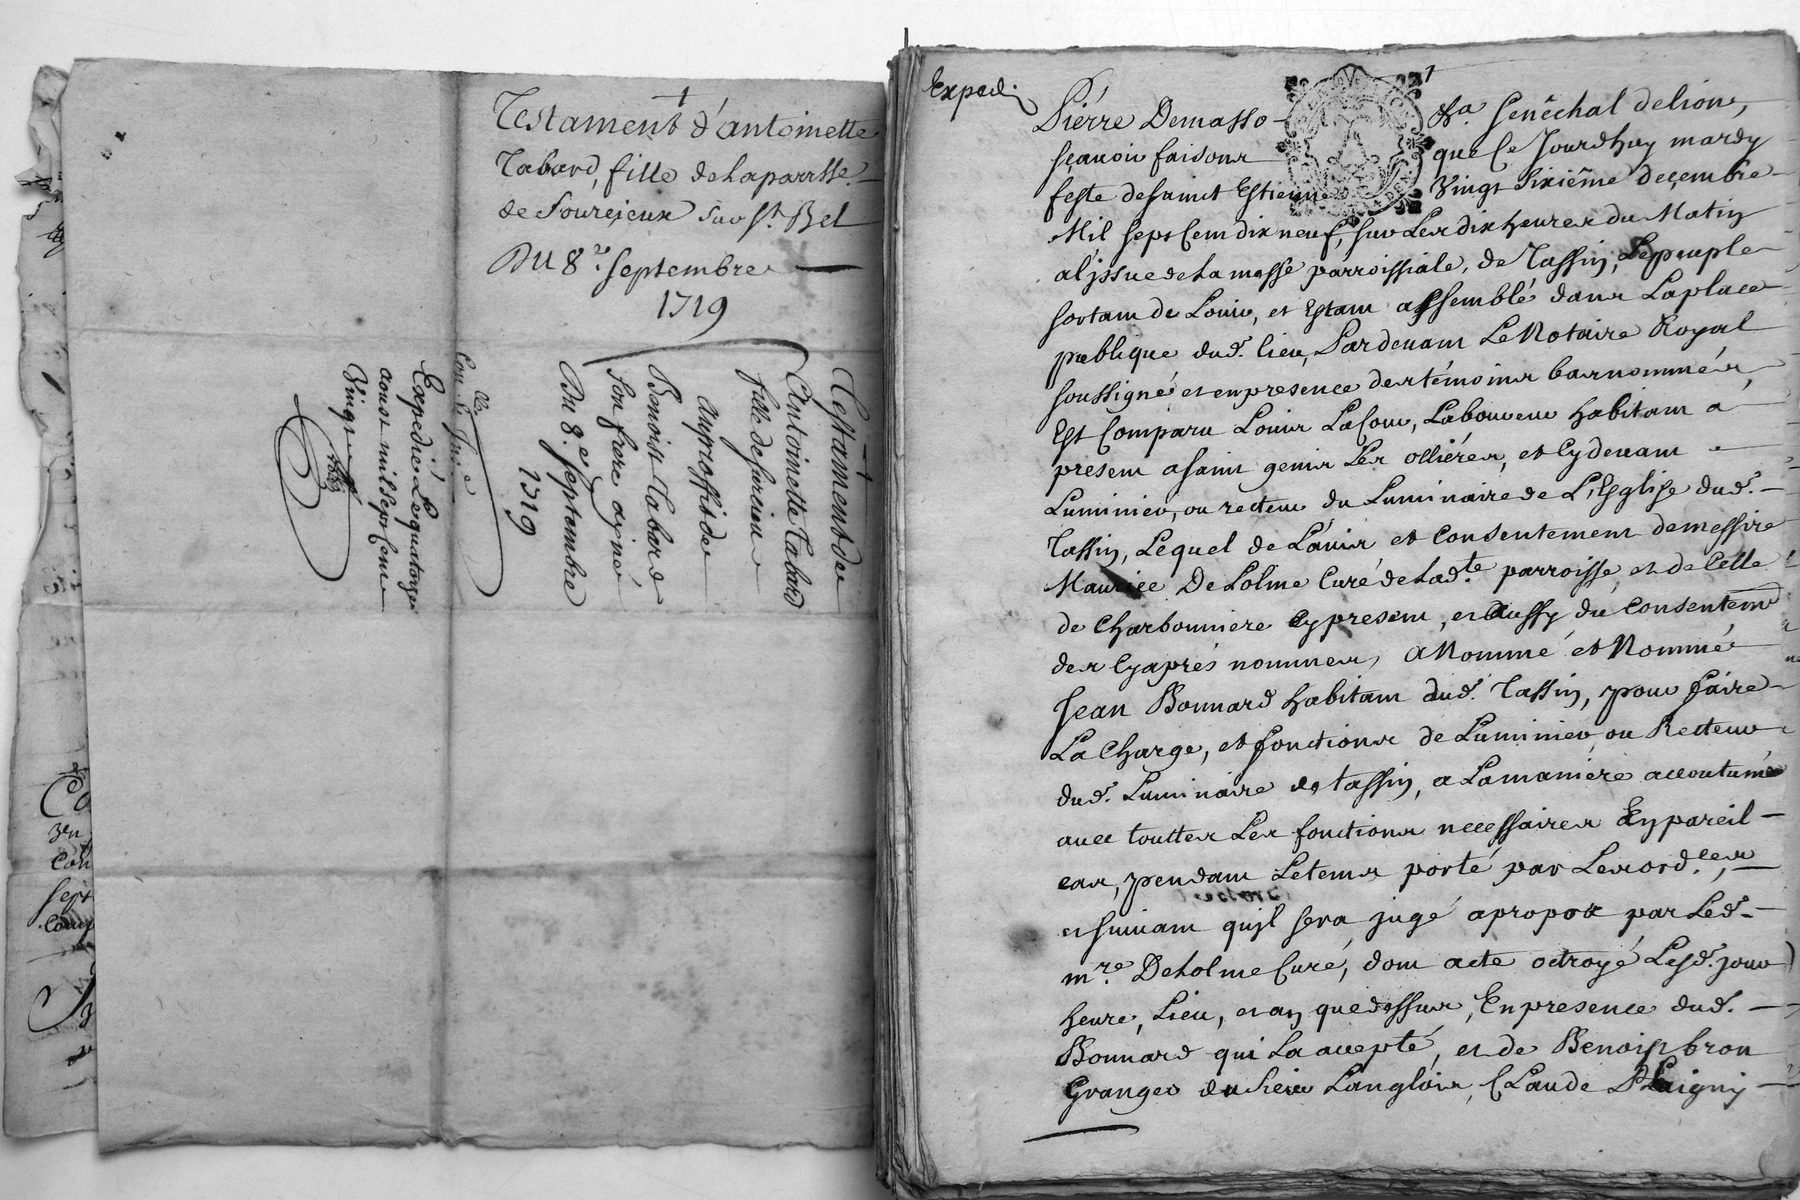 Testament d'antoinette
Tabard, fille de laparrsse.
de Sourcieux sur St. Bel
Du 8e. septembre
1719
Testament de
Antoinette Tabard
fille de Sursieu
auproffit de
Benoist Tabard
son frere ayné
Du 8.e septembre
1719
Expedié Lequatorze
aoust mil sept Cent
Vingt
Exped.
Pierre Demasso
Sa. Senêchal delion,
sçauoir faisons
que Ce Jourdhuy mardy
feste desainct Estienne
Vingt Sixiême decembre
Mil sept Cent dix neuf, sur Les dix heures du Matin
al'jssue de La messe parroissiale, de Tassin, Le peuple
sortant de Louir, et Estant assemblé dans La place
publique dud. lieu, Pardeuant Le Notaire Royal
soussigné et en presence des témoins bas nommés,
Est Comparu Louis LaCour, Laboureur habitant a
present a saint genis Les ollières, et Cydeuant
Luminier, ou recteur du Luminaire de L'Esglise dud.
Tassin, Lequel de L'auis et Consentement demessire
Maurice DeLolme Curé de Lad.te parroisse et de Celle
de Charbonniere Cy present, et Aussy du Consentemt
des Cyaprés nommes, a Nommé et Nomme
Jean Bonnard habitant dud. Tassin, pour faire
La Charge, et fonctions de Luminier ou Recteur
dud. Luminaire de tassin, a La maniere accoutumé
auec touttes Les fonctions necessaires En pareil
cas, pendant Le tems porté par Les ord.ces,
et suiuant qu'jl sera jugé apropos par Led.
m.re DeLolme Curé, dont acte octroyé Lesd. jour
heure, Lieu, et an que dessus, En presence dud.
Bonnard qui La accepté, et de Benoist bron
Granger du sieur Langlois, Claude